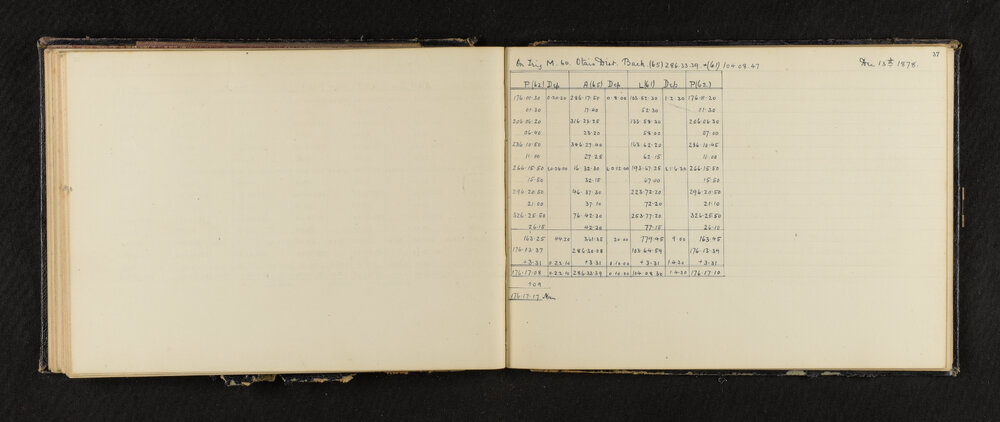 37
On Trig M. 60. Otaio Dist. Back. (65) 286.33.39. + (61) 104.08.47 Dec 13th 1878.
P (62) Dep A (65) Dep L (61) Dep P (62)
176.01.30 0.20.20 286.17.50 0.8.00 103.52.30 1.2.30 176.01.20
01.30 17.40 52.30 01.30
206.06.20 316.23.25 133.58.30 206.06.30
06.40 23.20 58.00 07.00
236.10.50 346.27.40 163.62.20 236.10.45
11.00 27.25 62.15 11.00
266.15.50 16.32.30 193.67.25 266.15.50
15.50 32.15 67.00 15.50
296.20.50 46.37.30 223.72.20 296.20.50
21.00 37.10 72.20 21.10
326.25.50 76.42.20 253.77.20 326.25.50
26.15 42.20 77.15 26.10
163.25 44.20 361.35 20.00 779.45 9.00 163.45
176.13.37 286.30.08 103.64.59 176.13.39
+3.31 0.22.10 +3.31 0.10.00 +3.31 1.4.30 +3.31
176.17.08 0.22.10 286.33.39 0.10.00 104.08.30 1.4.30 176.17.10
+09
176.17.17